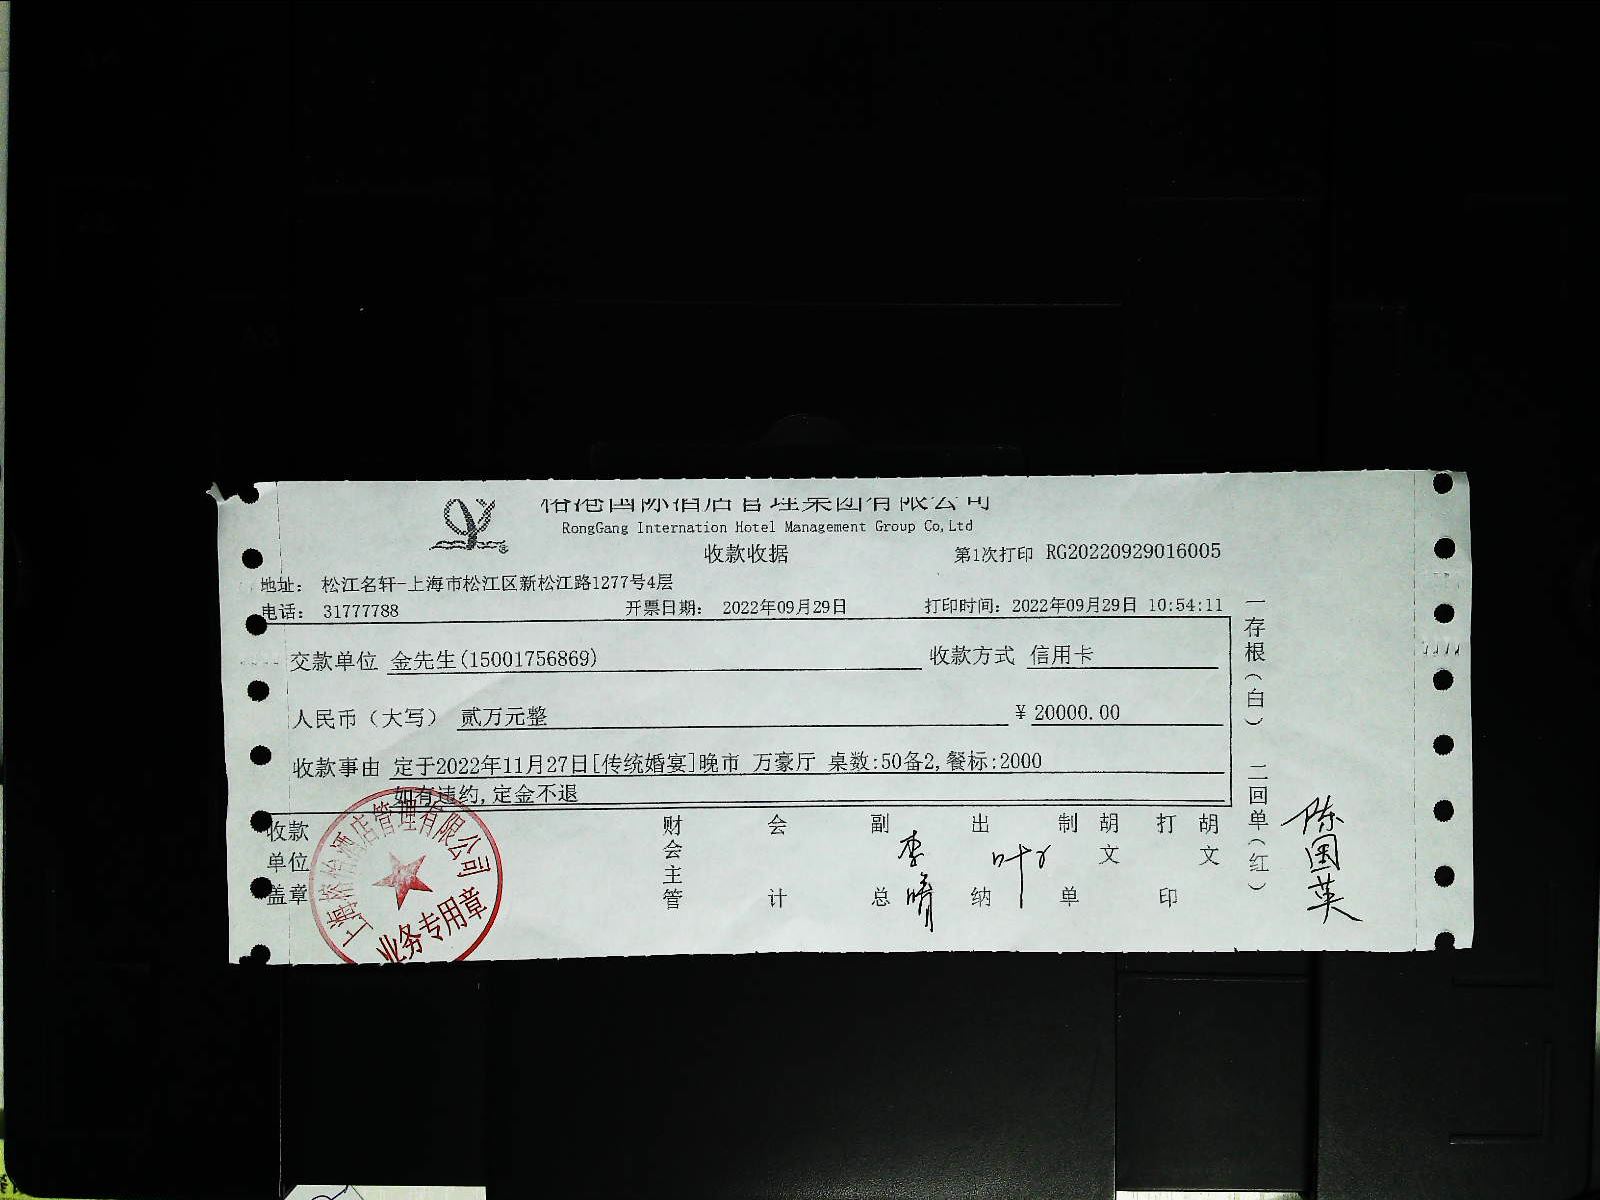 榕港国际酒店管理集团有限公司
RongGang Internation Hotel Management Group Co,Ltd
收款收据
第1次打印 RG20220929016005
地址: 松江名轩-上海市松江区新松江路1277号4层
电话: 31777788 开票日期: 2022年09月29日 打印时间: 2022年09月29日 10:54:11
交款单位 金先生(15001756869) 收款方式 信用卡
人民币(大写) 贰万元整 ¥ 20000.00
收款事由 定于2022年11月27日[传统婚宴]晚市 万豪厅 桌数:50备2,餐标:2000
如有违约,定金不退
收款单位盖章
财会主管
会计
副总
出纳 叶
制单 胡文
打印 胡文
一存根(白) 二回单(红)
陈国英
酒店管理有限公司
业务专用章